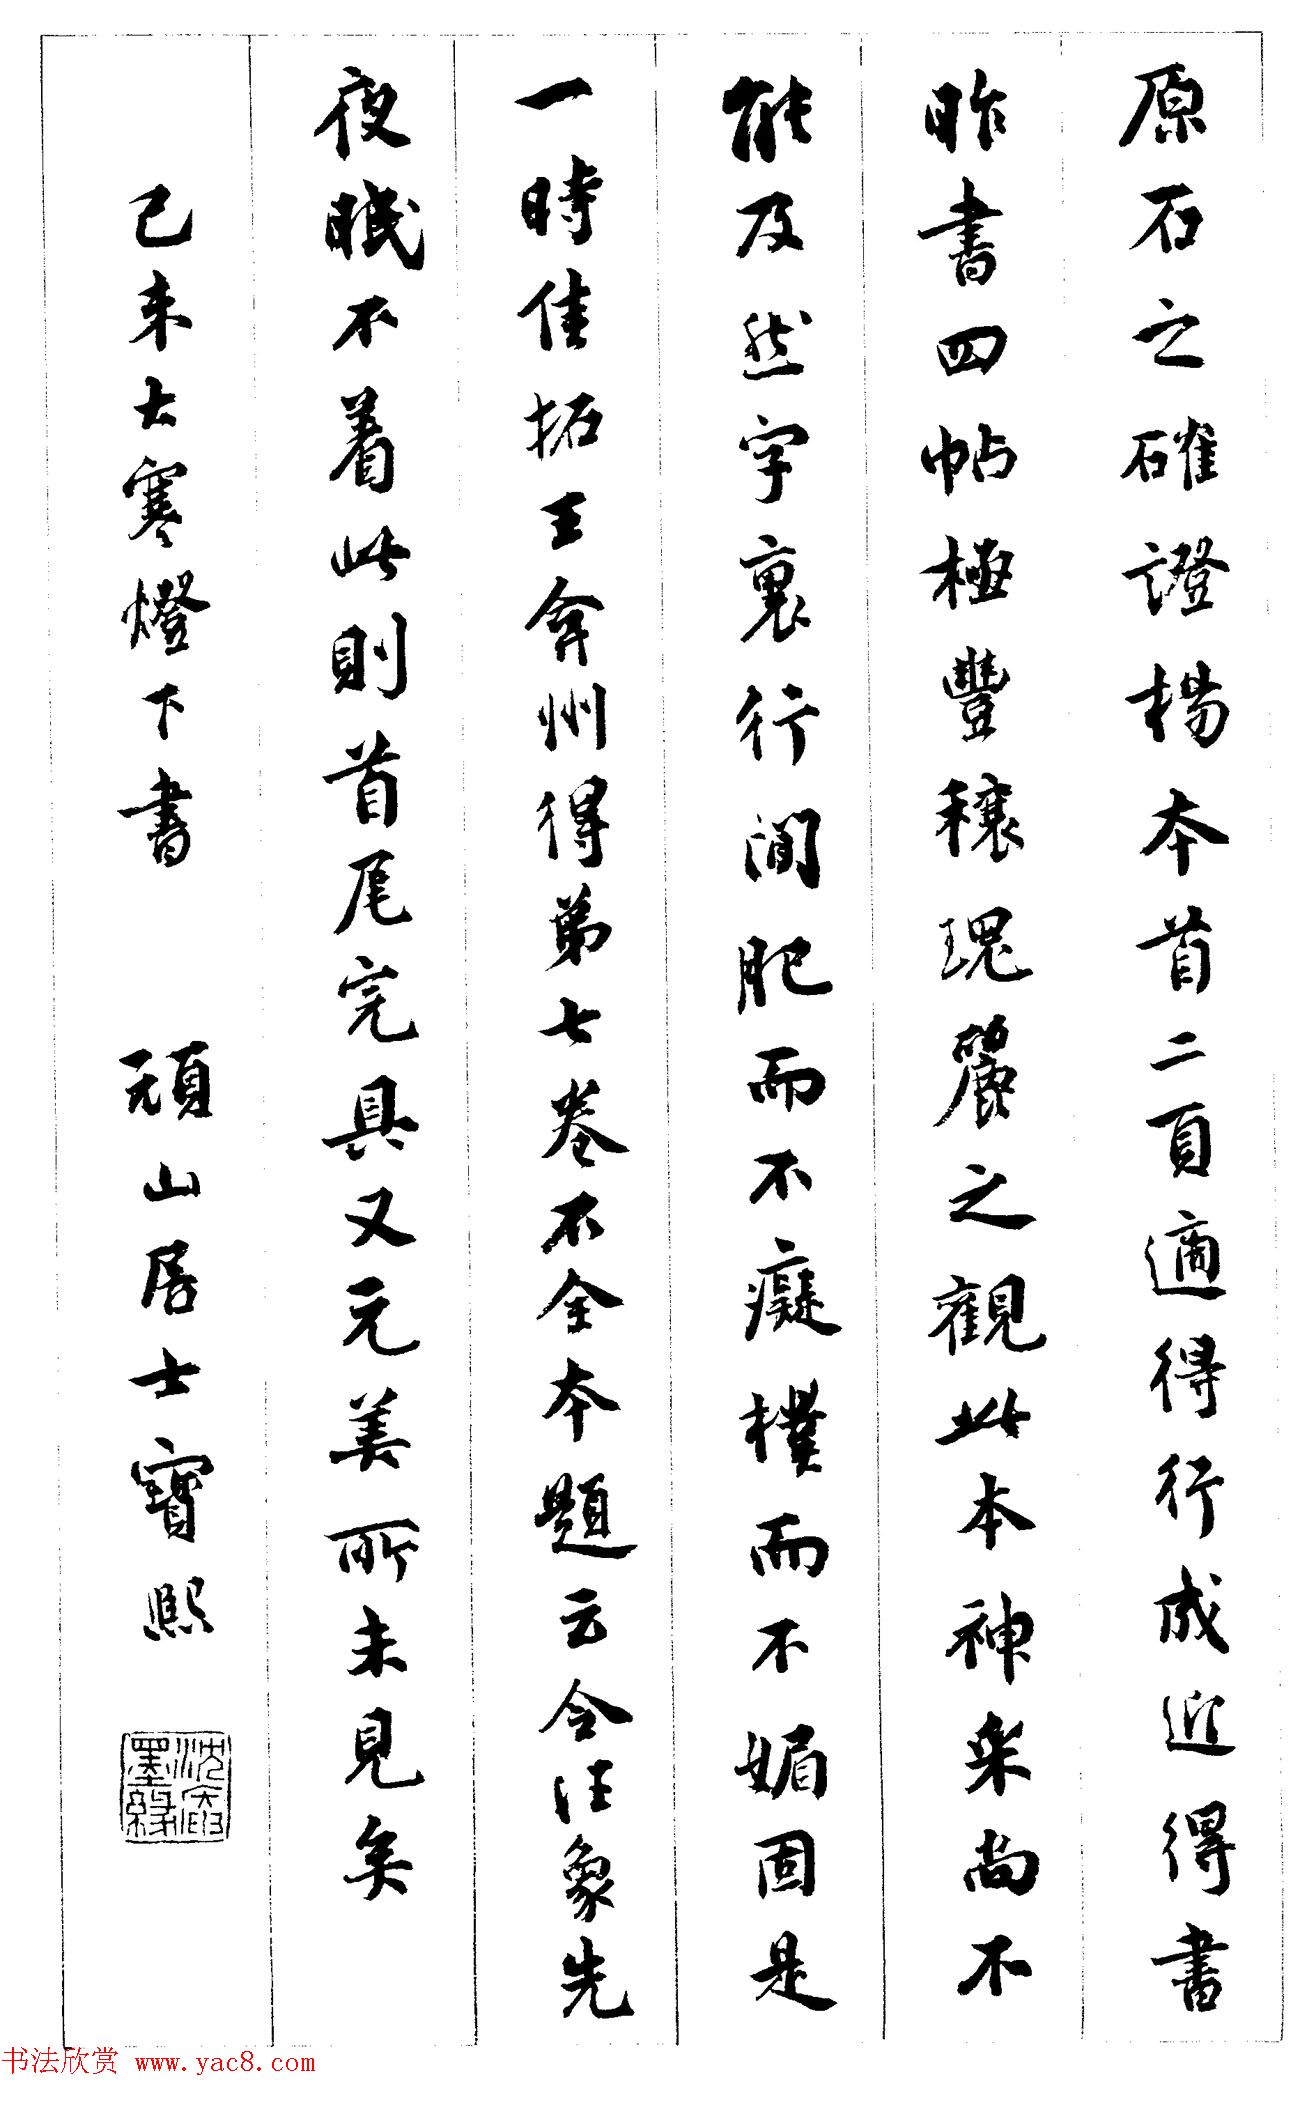 原石之確證楊本首二頁適得行成近得書
昨書四帖極豐穰瑰麗之觀此本神采尚不
能及然字裏行間肥而不癡樸而不媚固是
一時佳拓王弇州得第七卷不全本題云令汪象先
夜眠不着此則首尾完具又元美所未見矣
己未大寒燈下書 頑山居士寶熙
墨緣
书法欣赏 www.yac8.com